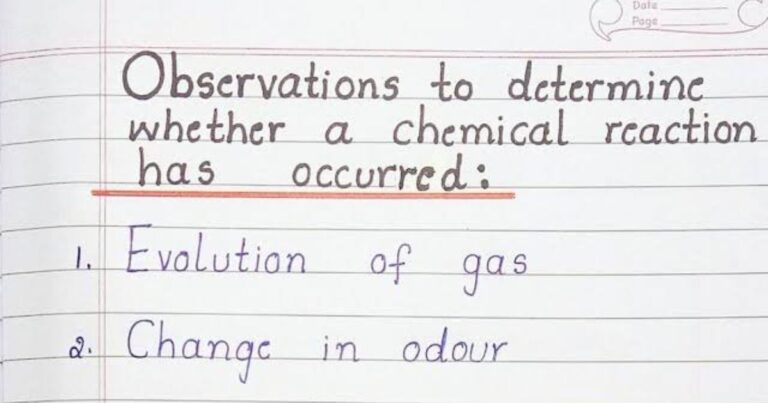 Date
Page
Observations to determine
whether a chemical reaction
has occurred:
1. Evolution of gas
2. Change in odour